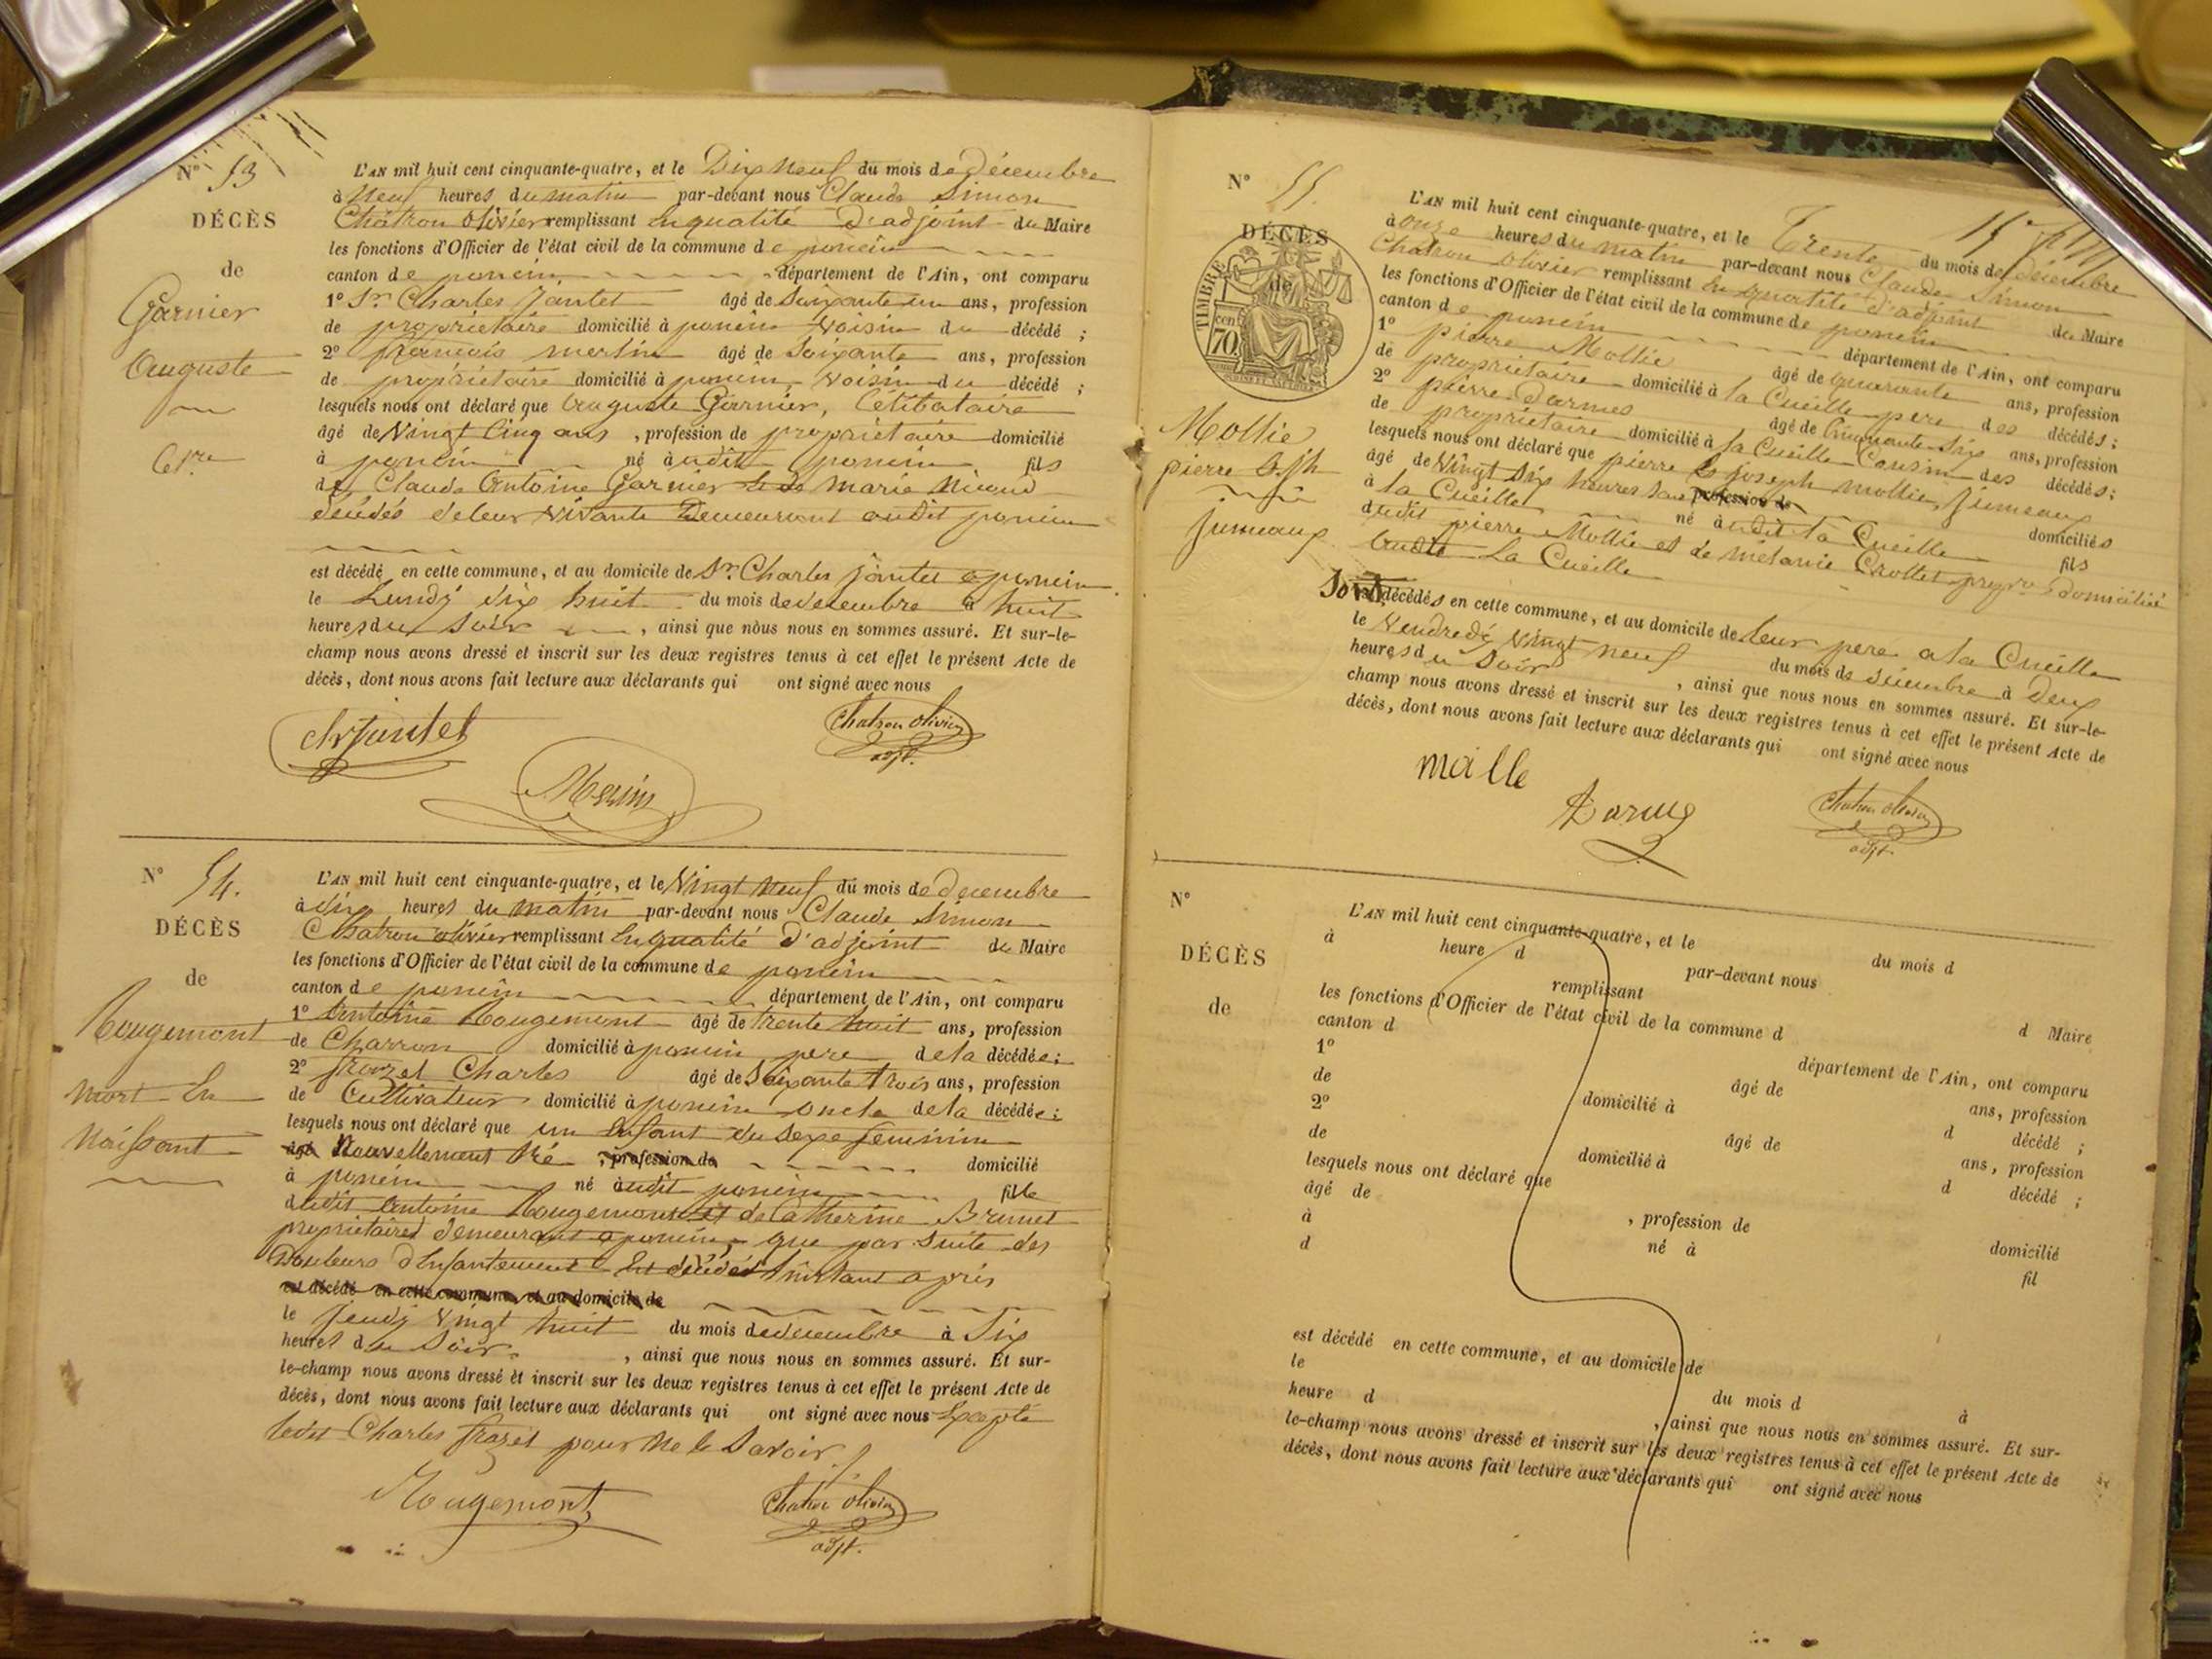 N° 53
DÉCÈS
de
Garnier
Auguste
Cre
L'AN mil huit cent cinquante-quatre, et le Dix neuf du mois de décembre
à Neuf heures du matin par-devant nous Claude Simon
Chatron olivier remplissant En qualité D'adjoint du Maire
les fonctions d'Officier de l'état civil de la commune de poncin
canton de poncin département de l'Ain, ont comparu
1° Sr Charles Jantet âgé de Soixante un ans, profession
de propriétaire domicilié à poncin voisin du décédé ;
2° françois merlin âgé de Soixante ans, profession
de propriétaire domicilié à poncin, voisin du décédé ;
lesquels nous ont déclaré que Auguste Garnier, Célibataire
âgé de Vingt Cinq ans , profession de propriétaire domicilié
à poncin né audit poncin fils
de Claude Antoine Garnier et de marie
décédés de leur vivant Demeurant audit poncin
est décédé en cette commune, et au domicile de Sr. Charles jantet a poncin
le Lundy dix huit du mois de décembre à huit
heures du Soir , ainsi que nous nous en sommes assuré. Et sur-le-
champ nous avons dressé et inscrit sur les deux registres tenus à cet effet le présent Acte de
décès, dont nous avons fait lecture aux déclarants qui ont signé avec nous
Chatron olivier
adjt.
N° 54.
DÉCÈS
de
Rougemont
mort En
Naissant
L'AN mil huit cent cinquante-quatre, et le Vingt Neuf du mois de Décembre
à dix heures du matin par-devant nous Claude Simon
Chatron olivier remplissant En qualité d'adjoint du Maire
les fonctions d'Officier de l'état civil de la commune de poncin
canton de poncin département de l'Ain, ont comparu
1° Antoine Rougemont âgé de trente huit ans, profession
de Charron domicilié à poncin pere de la décédée ;
2° frazet Charles âgé de Soixante trois ans, profession
de Cultivateur domicilié à poncin oncle de la décédée ;
lesquels nous ont déclaré que un Enfant du Sexe feminin
âgé Nouvellement Né , profession de domicilié
à poncin né audit poncin fille
dudit Antoine Rougemont et de Catherine Brunet
propriétaires demeurant a poncin, que par Suite des
Douleurs d'Enfantement Est décédé L'instant après
est décédé en cette commune, et au domicile de
le jeudy Vingt huit du mois de décembre à Six
heures du Soir , ainsi que nous nous en sommes assuré. Et sur-
le-champ nous avons dressé et inscrit sur les deux registres tenus à cet effet le présent Acte de
décès, dont nous avons fait lecture aux déclarants qui ont signé avec nous Excepté
ledit Charles frazet pour Ne le Savoir
Rougemont
Chatron olivier
adjt.
N° 55.
DÉCÈS
de
TIMBRE
cen
70
Mollie
pierre & Jh
jumeaux
L'AN mil huit cent cinquante-quatre, et le Trente du mois de décembre
à onze heures du matin par-devant nous Claude Simon
Chatron olivier remplissant En qualité d'adjoint du Maire
les fonctions d'Officier de l'état civil de la commune de poncin
canton de poncin département de l'Ain, ont comparu
1° pierre Mollie âgé de quarante ans, profession
de propriétaire domicilié à la Cueille pere des décédés ;
2° pierre Darmes âgé de Cinquante Six ans, profession
de propriétaire domicilié à la Cueille Cousin des décédés ;
lesquels nous ont déclaré que pierre & joseph mollie, jumeaux
âgé de Vingt Six heures Sans profession de domiciliés
à la Cueille né audit la Cueille fils
dudit pierre Mollie et de mélanie Crollet domicilié
La Cueille
Sont décédés en cette commune, et au domicile de leur pere a la Cueille
le Vendredy Vingt neuf du mois de décembre à Deux
heures du Soir , ainsi que nous nous en sommes assuré. Et sur-le-
champ nous avons dressé et inscrit sur les deux registres tenus à cet effet le présent Acte de
décès, dont nous avons fait lecture aux déclarants qui ont signé avec nous
Chatron olivier
adjt.
N°
DÉCÈS
de
L'AN mil huit cent cinquante-quatre, et le du mois d
à heure d par-devant nous
remplissant d Maire
les fonctions d'Officier de l'état civil de la commune d
canton d département de l'Ain, ont comparu
1° âgé de ans, profession
de domicilié à d décédé ;
2° âgé de ans, profession
de domicilié à d décédé ;
lesquels nous ont déclaré que
âgé de , profession de domicilié
à né à fil
d
est décédé en cette commune, et au domicile de
le du mois d à
heure d , ainsi que nous nous en sommes assuré. Et sur-
le-champ nous avons dressé et inscrit sur les deux registres tenus à cet effet le présent Acte de
décès, dont nous avons fait lecture aux déclarants qui ont signé avec nous